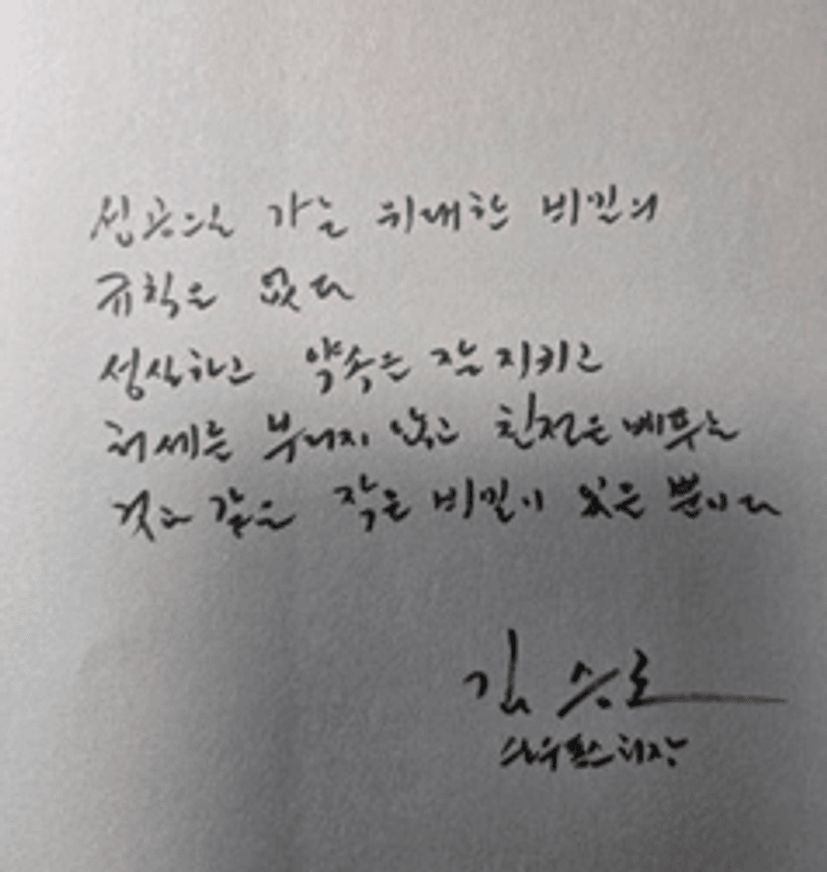 성공으로 가는 위대한 비밀의
규칙은 없다
성실하고 약속은 잘 지키고
허세는 부리지 않고 친절은 베푸는
것과 같은 작은 비밀이 있을 뿐이다
김승호
스노우폭스 회장